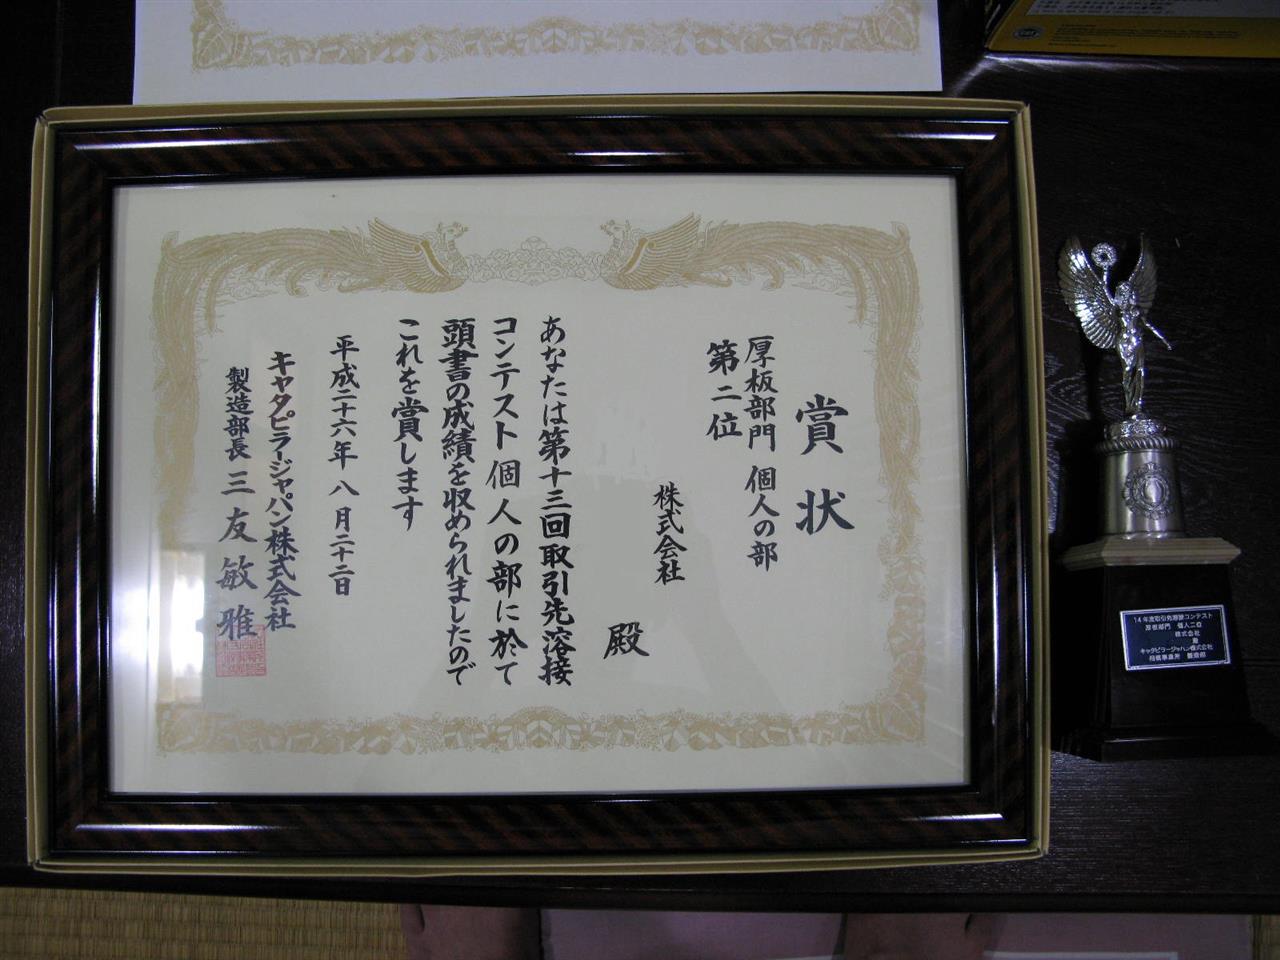 賞状
厚板部門 個人の部
第二位
株式会社
殿
あなたは第十三回取引先溶接
コンテスト個人の部に於て
頭書の成績を収められましたので
これを賞します
平成二十六年八月二十二日
キャタピラージャパン株式会社
製造部長 三友敏雅
14年度取引先溶接コンテスト
厚板部門 個人二位
株式会社
殿
キャタピラージャパン株式会社
相模事業所 製造部